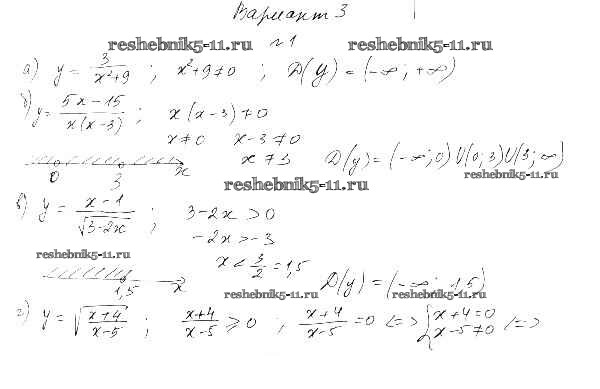 Вариант 3
reshebnik5-11.ru №1 reshebnik5-11.ru
а) y = 3/(x²+9) ; x²+9≠0 ; D(y) = (-∞; +∞)
б) y = (5x-15)/(x(x-3)) ; x(x-3)≠0
x≠0 x-3≠0
x≠3 D(y) = (-∞; 0)U(0; 3)U(3; ∞)
0 3 x
reshebnik5-11.ru
reshebnik5-11.ru
в) y = (x-1)/√(3-2x) ; 3-2x>0
-2x>-3
reshebnik5-11.ru
x < 3/2 = 1,5
1,5 x D(y) = (-∞; 1,5)
reshebnik5-11.ru reshebnik5-11.ru
г) y = √((x+4)/(x-5)) ; (x+4)/(x-5) ≥ 0 ; (x+4)/(x-5) = 0 <=> { x+4=0
x-5≠0 <=>